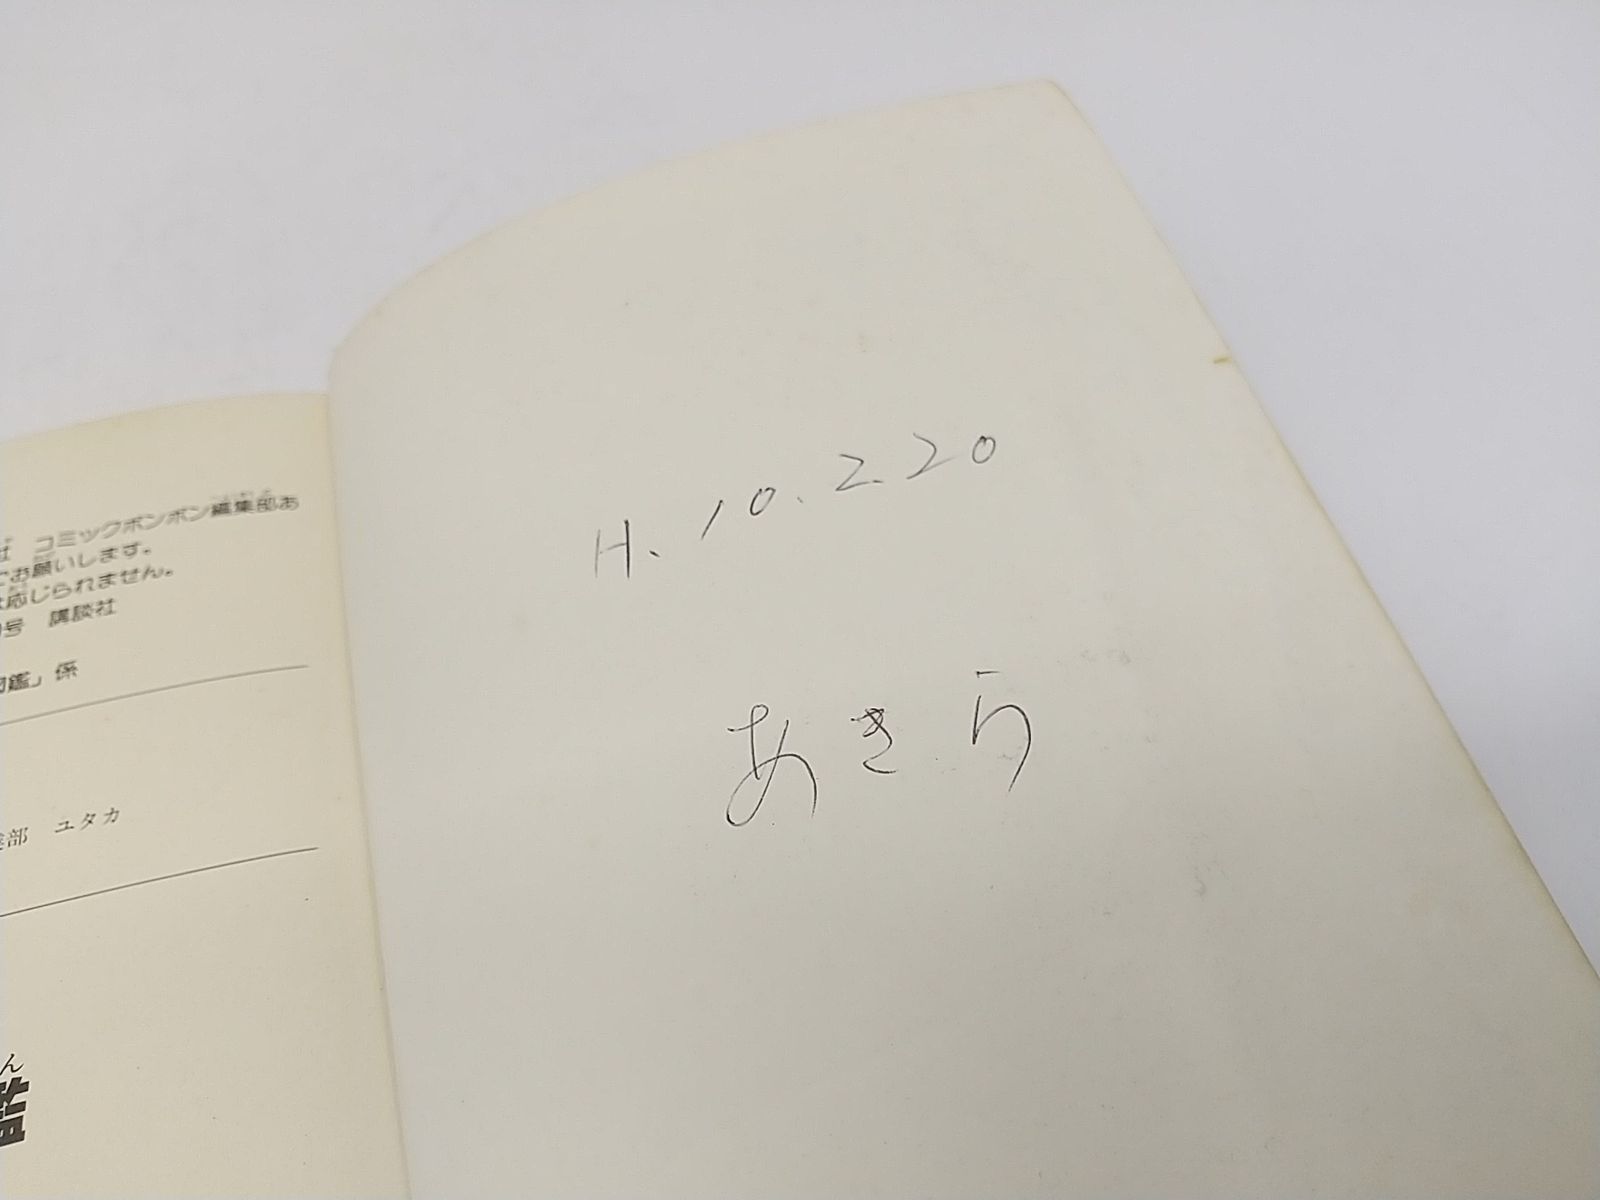 社 コミックボンボン編集部あ
でお願いします。
は応じられません。
号 講談社
図鑑」係
集部 ユタカ
ん
H.10.2.20
あきら